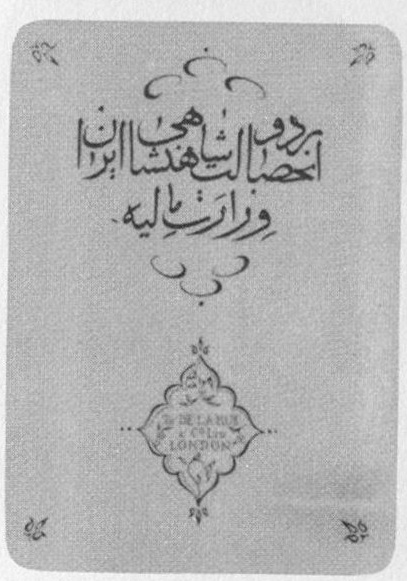 انحصار دولت شاهنشاهی ایران
وزارت مالیه
DE LA RUE
& Co LTD
LONDON